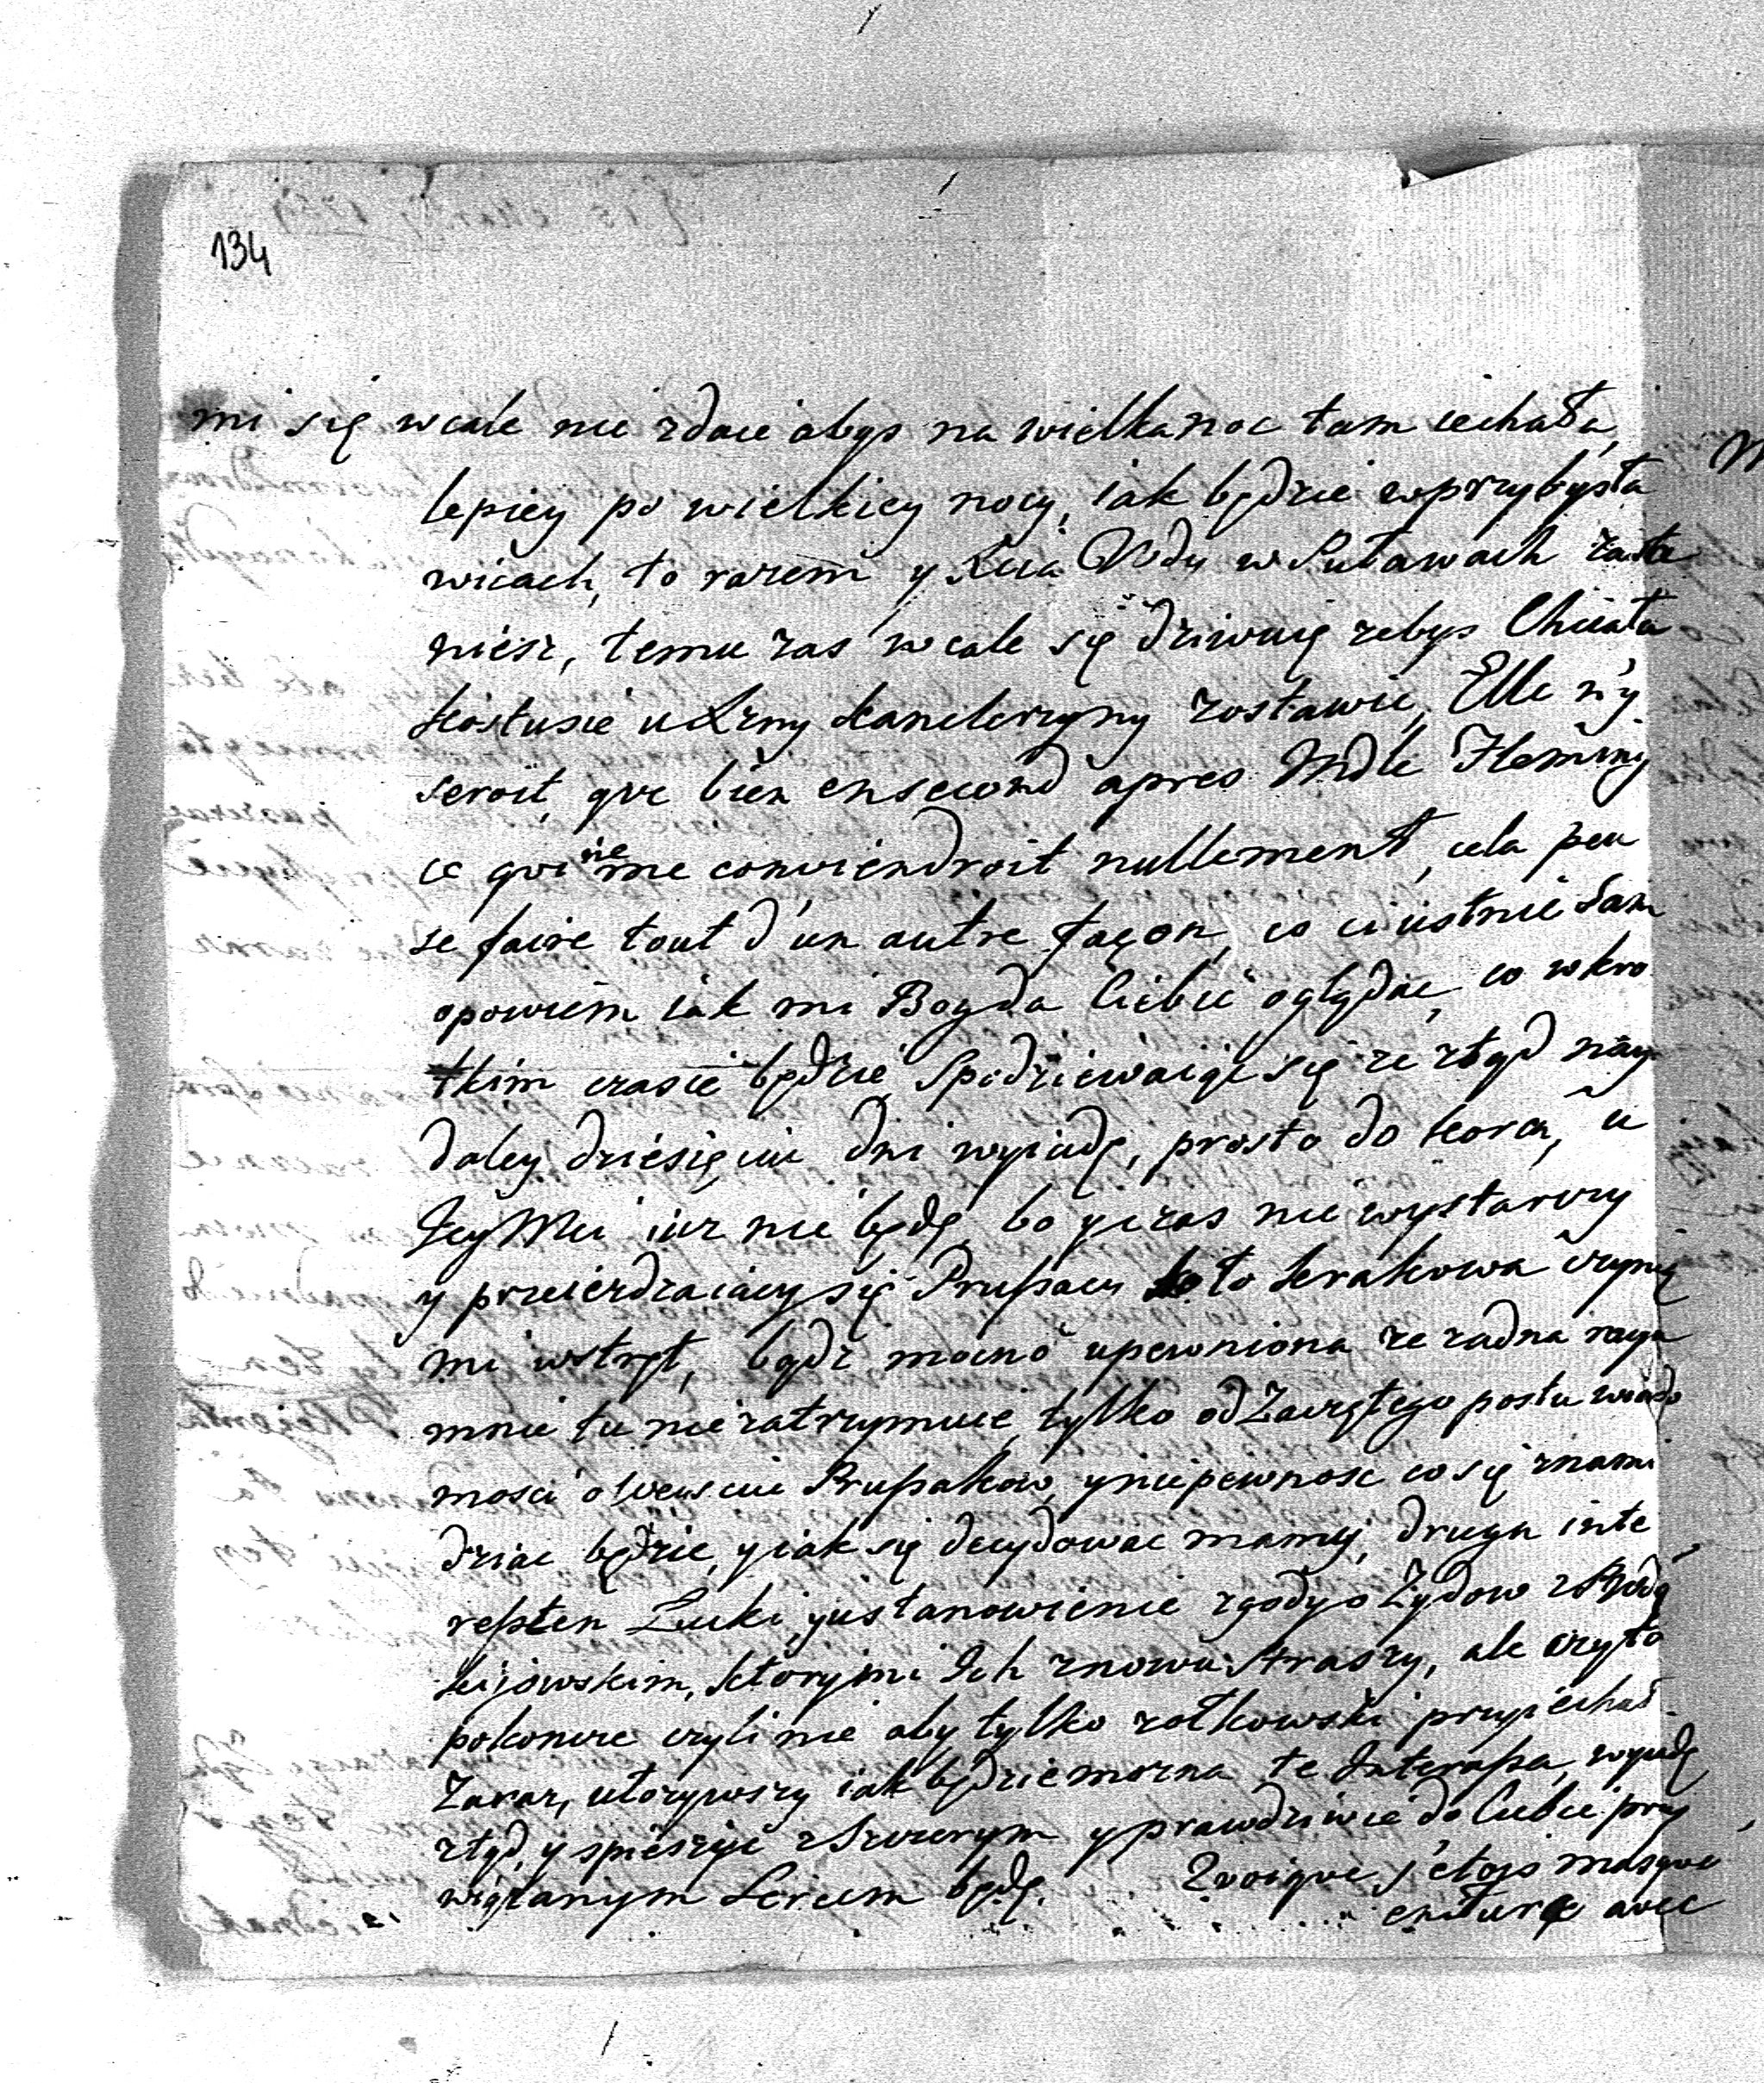 134
mi się wcale nie zdaie abys na wielkanoc tam iechała,
lepiey po wielkiey nocy, iak będzie w przybysła
wicach, to razem y Xcia Wdy w Puławach zasta
niesz, temu zas wcale się dziwuię zebys Chciała
Kostusie u Xzny Kanclerzyny zostawic, Elle n'y
seroit que bien en second apres Mdlle Fleming
ce qui ne me conviendroit nullement, cela peu
se faire tout d'un autre façon, co ci ustnie sam
opowiem iak mi Bog da Ciebie oglądac, co wkro
tkim czasie będzie Spodziewaiąc się ze ztąd nay
daley dziesięciu dni wyiadę, prosto do Korca, u
JeyMci iuz nie będę, bo y czas nie wystarczy
y przeierdzaiacy się Prusacy to Krakowa czynią
mi wstręt, bądz mocno upewniona ze zadna racya
mnie tu nie zatrzymuie, tylko od Zaczętego postu wiado
mosci o weysciu Prusakow, y niepewnosc co się znami
dziac będzie, y iak się decydowac mamy, druga inte
ress ten Luki, y ustanowienie zgody o Zydow z Wdą
kijowskim, ktorymi Ich znowu straszy, ale czy to
pokoncze czyli nie aby tylko zołkowski przyiechał
Zaraz, ułozywszy iak będzie mozna te Interessa, wyiadę
ztąd, y spieszyc z Szczerym y prawdziwie do Ciebie przy
wiązanym Sercem będę. Quoique j'etois masque
en turc avec